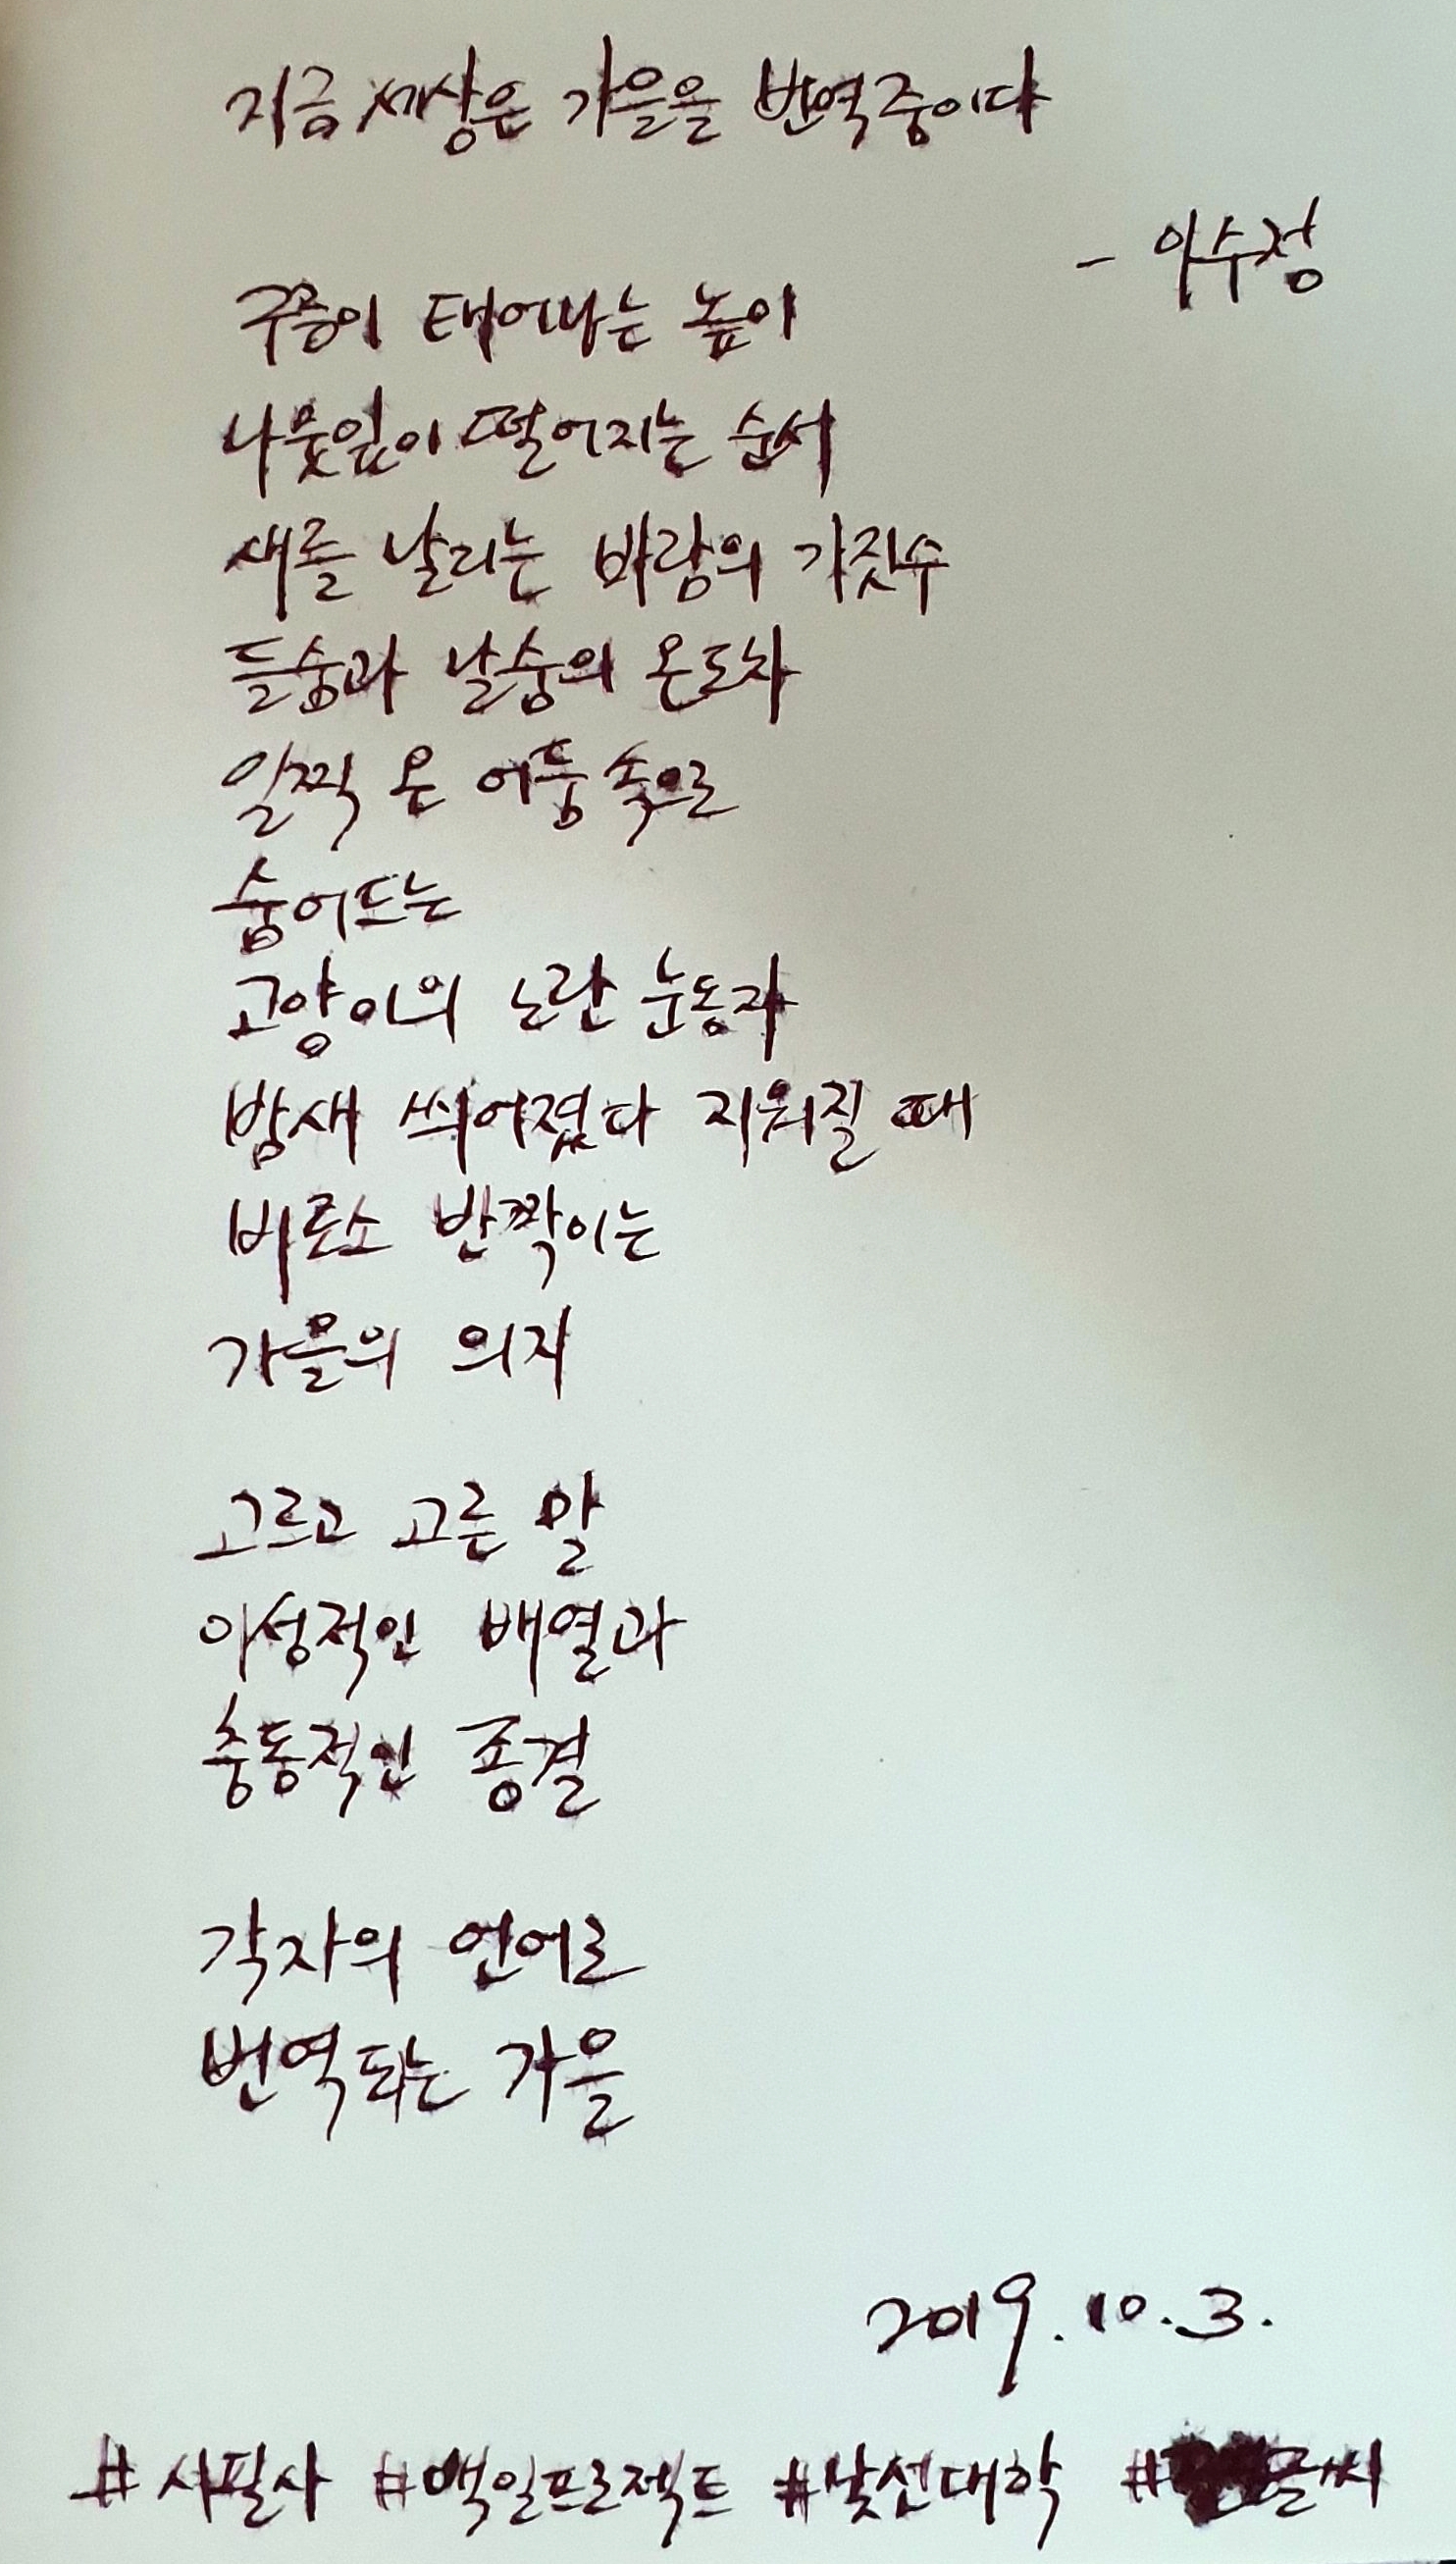 지금 세상은 가을을 번역중이다
- 이수정
구름이 태어나는 높이
나뭇잎이 떨어지는 순서
새를 날리는 바람의 가짓수
들숨과 날숨의 온도차
일찍 온 어둠 속으로
숨어드는
고양이의 노란 눈동자
밤새 씌어졌다 지워질 때
비로소 반짝이는
가을의 의지
고르고 고른 말
이성적인 배열과
충동적인 종결
각자의 언어로
번역되는 가을
2019.10.3.
#시필사 #백일프로젝트 #낯선대학 #글씨